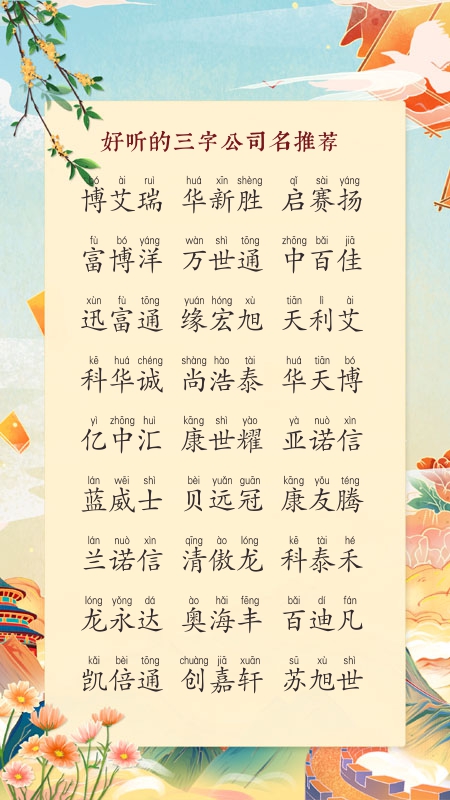 好听的三字公司名推荐
bó ài ruì huá xīn shèng qǐ sài yáng
博艾瑞 华新胜 启赛扬
fù bó yáng wàn shì tōng zhōng bǎi jiā
富博洋 万世通 中百佳
xùn fù tōng yuán hóng xù tiān lì ài
迅富通 缘宏旭 天利艾
kē huá chéng shàng hào tài huá tiān bó
科华诚 尚浩泰 华天博
yì zhōng huì kāng shì yào yà nuò xìn
亿中汇 康世耀 亚诺信
lán wēi shì bèi yuǎn guān kāng yǒu téng
蓝威士 贝远冠 康友腾
lán nuò xìn qīng ào lóng kē tài hé
兰诺信 清傲龙 科泰禾
lóng yǒng dá ào hǎi fēng bǎi dí fán
龙永达 奥海丰 百迪凡
kǎi bèi tōng chuàng jiā xuān sū xù shì
凯倍通 创嘉轩 苏旭世